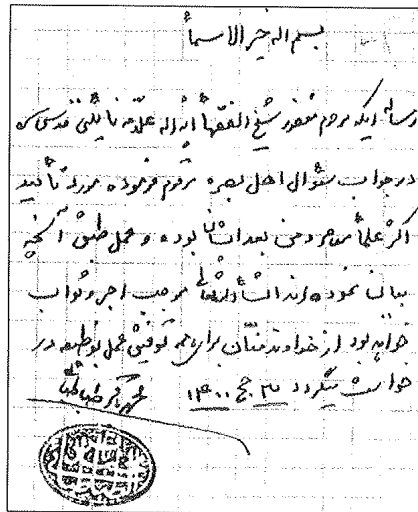 بسم الله خیر الاسماء
رساله ایکه مرحوم مغفور شیخ الفقهاء آیة الله علامه نائینی قدس سره
در جواب سئوال اهل بصره مرقوم فرموده مورد تأیید
اکثر علماء موجود من بعد ایشان بوده و عمل طبق آنچه
بیان نموده اند انشاءالله تعالی موجب اجر و ثواب
خواهد بود از خداوند منان برای همه توفیق عمل بوظیفه در
خواست میگردد ۳ ج ۱۴۰۰ طباطبائی